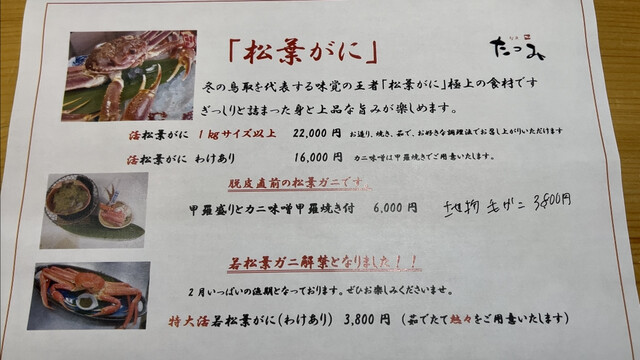 「松葉がに」
たつみ
冬の鳥取を代表する味覚の王者「松葉がに」極上の食材です
ぎっしりと詰まった身と上品な旨みが楽しめます。
活松葉がに 1kgサイズ以上 22,000円 お造り、焼き、茹で、お好きな調理法でお召し上がりいただけます
活松葉がに わけあり 16,000円 カニ味噌は甲羅焼きでご用意いたします。
脱皮直前の松葉ガニです。
甲羅盛りとカニ味噌甲羅焼き付 6,000円
地物 毛がに 3,800円
若松葉ガニ解禁となりました！！
2月いっぱいの漁期となっております。ぜひお楽しみくださいませ。
特大活若松葉がに(わけあり) 3,800円 (茹でたて熱々をご用意いたします)